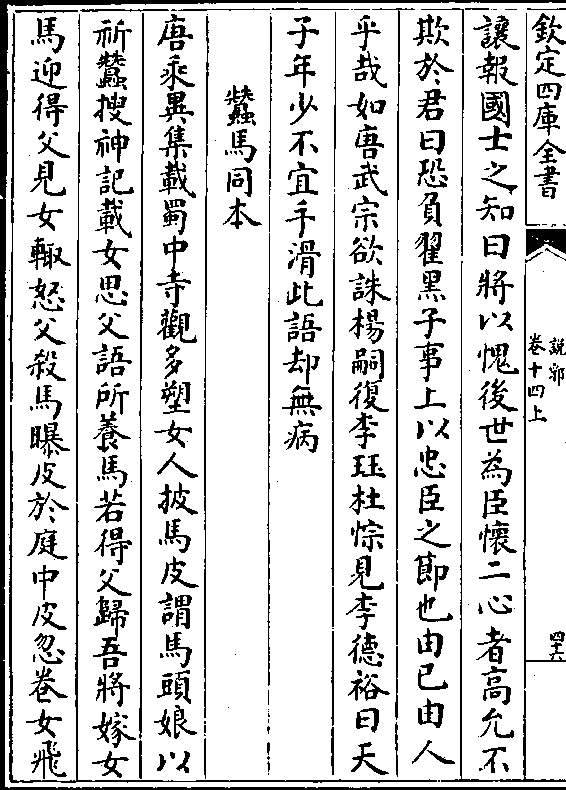 欽定四庫全書
說郛
卷十四上
四十六
讓報國士之知曰將以愧後世為臣懷二心者高允不
欺於君曰恐負翟黑子事上以忠臣之節也由已由人
乎哉如唐武宗欲誅楊嗣復李珏杜悰見李德裕曰天
子年少不宜手滑此語却無病
蠶馬同本
唐乘異集載蜀中寺觀多塑女人披馬皮謂馬頭娘以
祈蠶搜神記載女思父語所養馬若得父歸吾將嫁女
馬迎得父見女輙怒父殺馬曝皮於庭中皮忽卷女飛